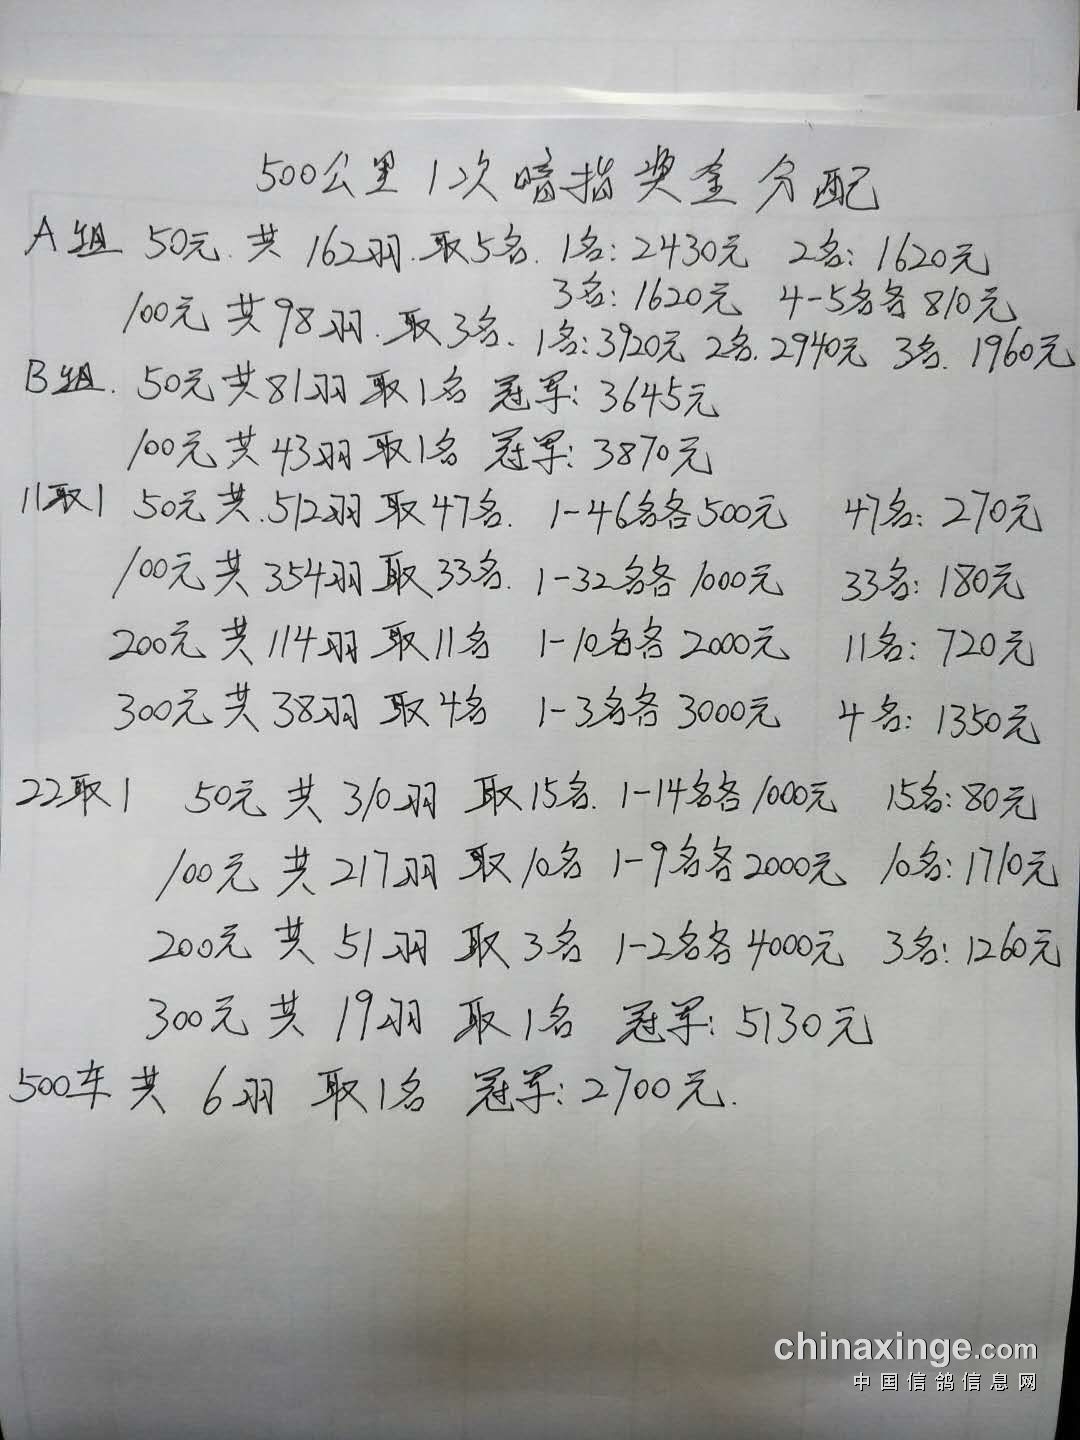 500公里1次暗指奖金分配
A组 50元.共 162羽.取5名. 1名:2430元 2名:1620元
3名:1620元 4-5名各810元
100元共98羽.取3名. 1名:3920元 2名.2940元 3名.1960元
B组. 50元共81羽取1名 冠军:3645元
100元共43羽取1名 冠军:3870元
11取1 50元共.512羽取47名. 1-46名各500元 47名:270元
100元共354羽取33名. 1-32名各1000元 33名:180元
200元共114羽取11名 1-10名各2000元 11名:720元
300元共38羽取4名 1-3名各3000元 4名:1350元
22取1 50元共310羽 取15名. 1-14名各1000元 15名:80元
100元共217羽 取10名 1-9名各2000元 10名:1710元
200元共51羽 取3名 1-2名各4000元 3名:1260元
300元共19羽 取1名 冠军:5130元
500车共 6羽 取1名 冠军:2700元.
chinaxinge.com
中国信鸽信息网